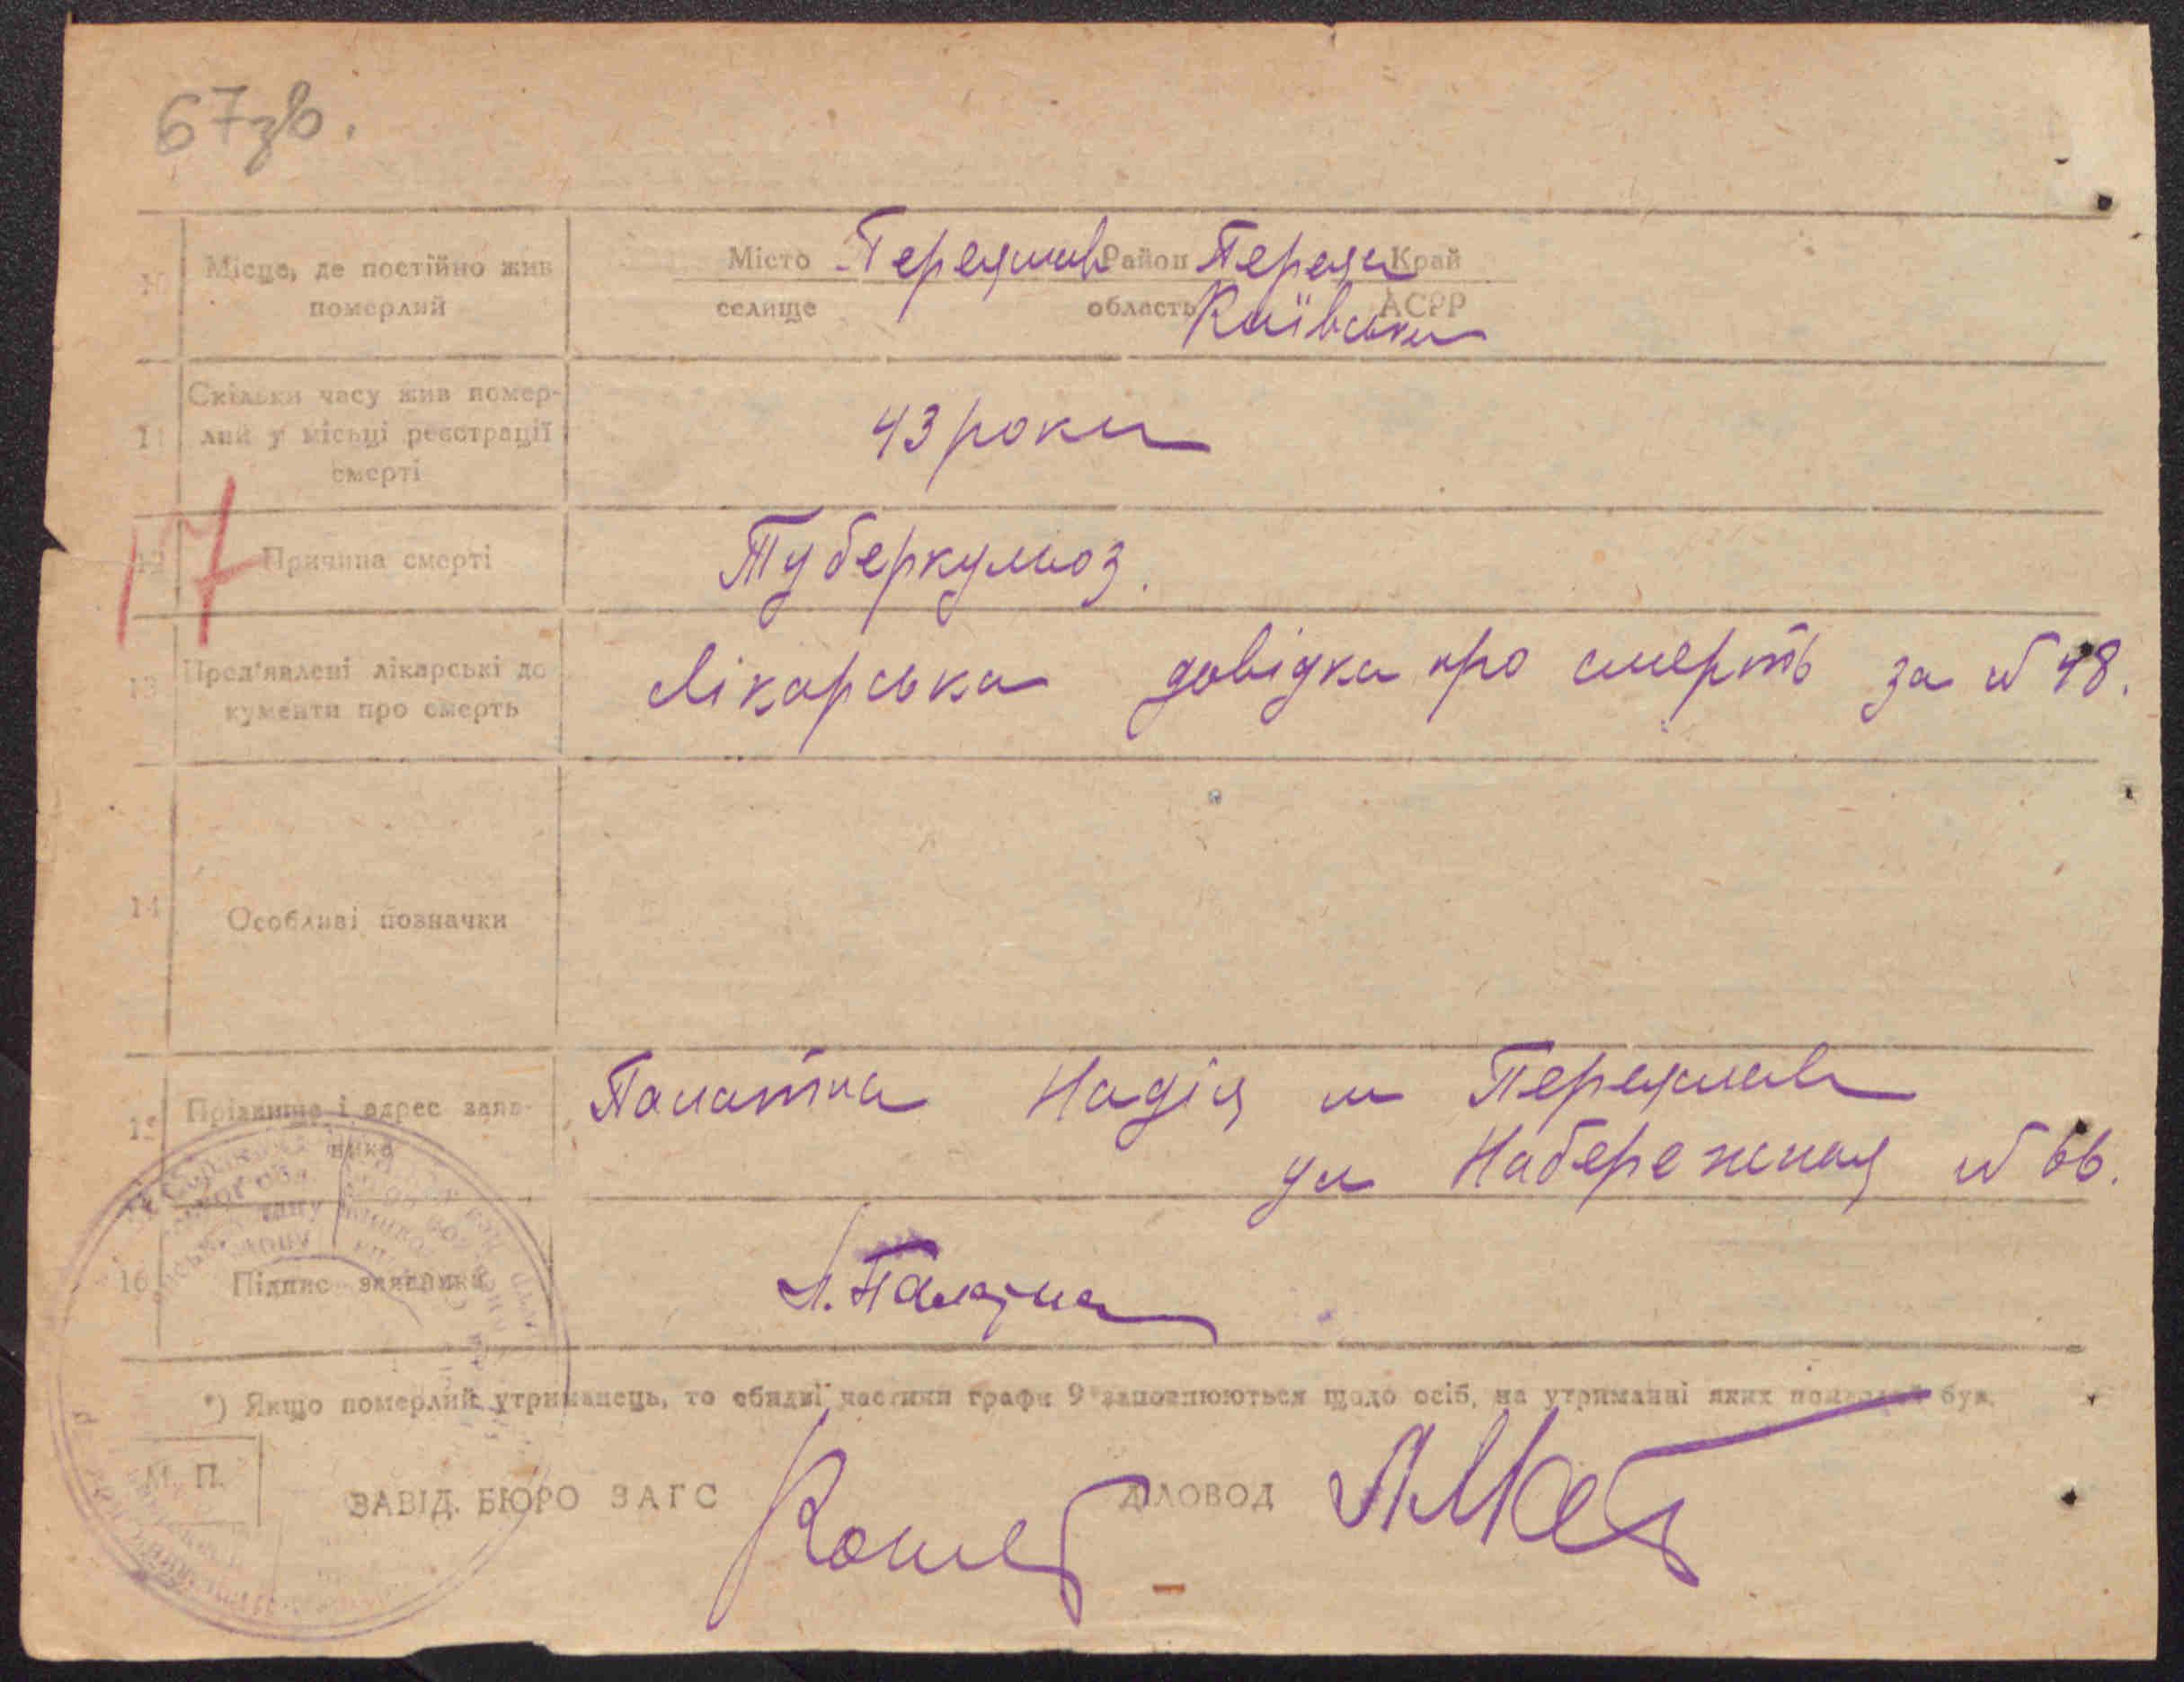 67зв.
10 Місце, де постійно жив померлий
Місто Переяслав Район Переясл Край
селище область Київська АСРР
11 Скільки часу жив помер-
лий у місьці реєстрації
смерті
43 роки
17
12 Причина смерті
Туберкульоз.
13 Пред'явлені лікарські до
кументи про смерть
Лікарська довідка про смерть за № 48.
14 Особливі позначки
15 Прізвище і адрес заяв-
ника
Надія м Переяслав
ул Набережная № 66.
16 Підпис заявника
*) Якщо померлий утриманець, то обидві частини графи 9 заповнюються щодо осіб, на утриманні яких померлий був.
М. П.
ЗАВІД. БЮРО ЗАГС
ДІЛОВОД